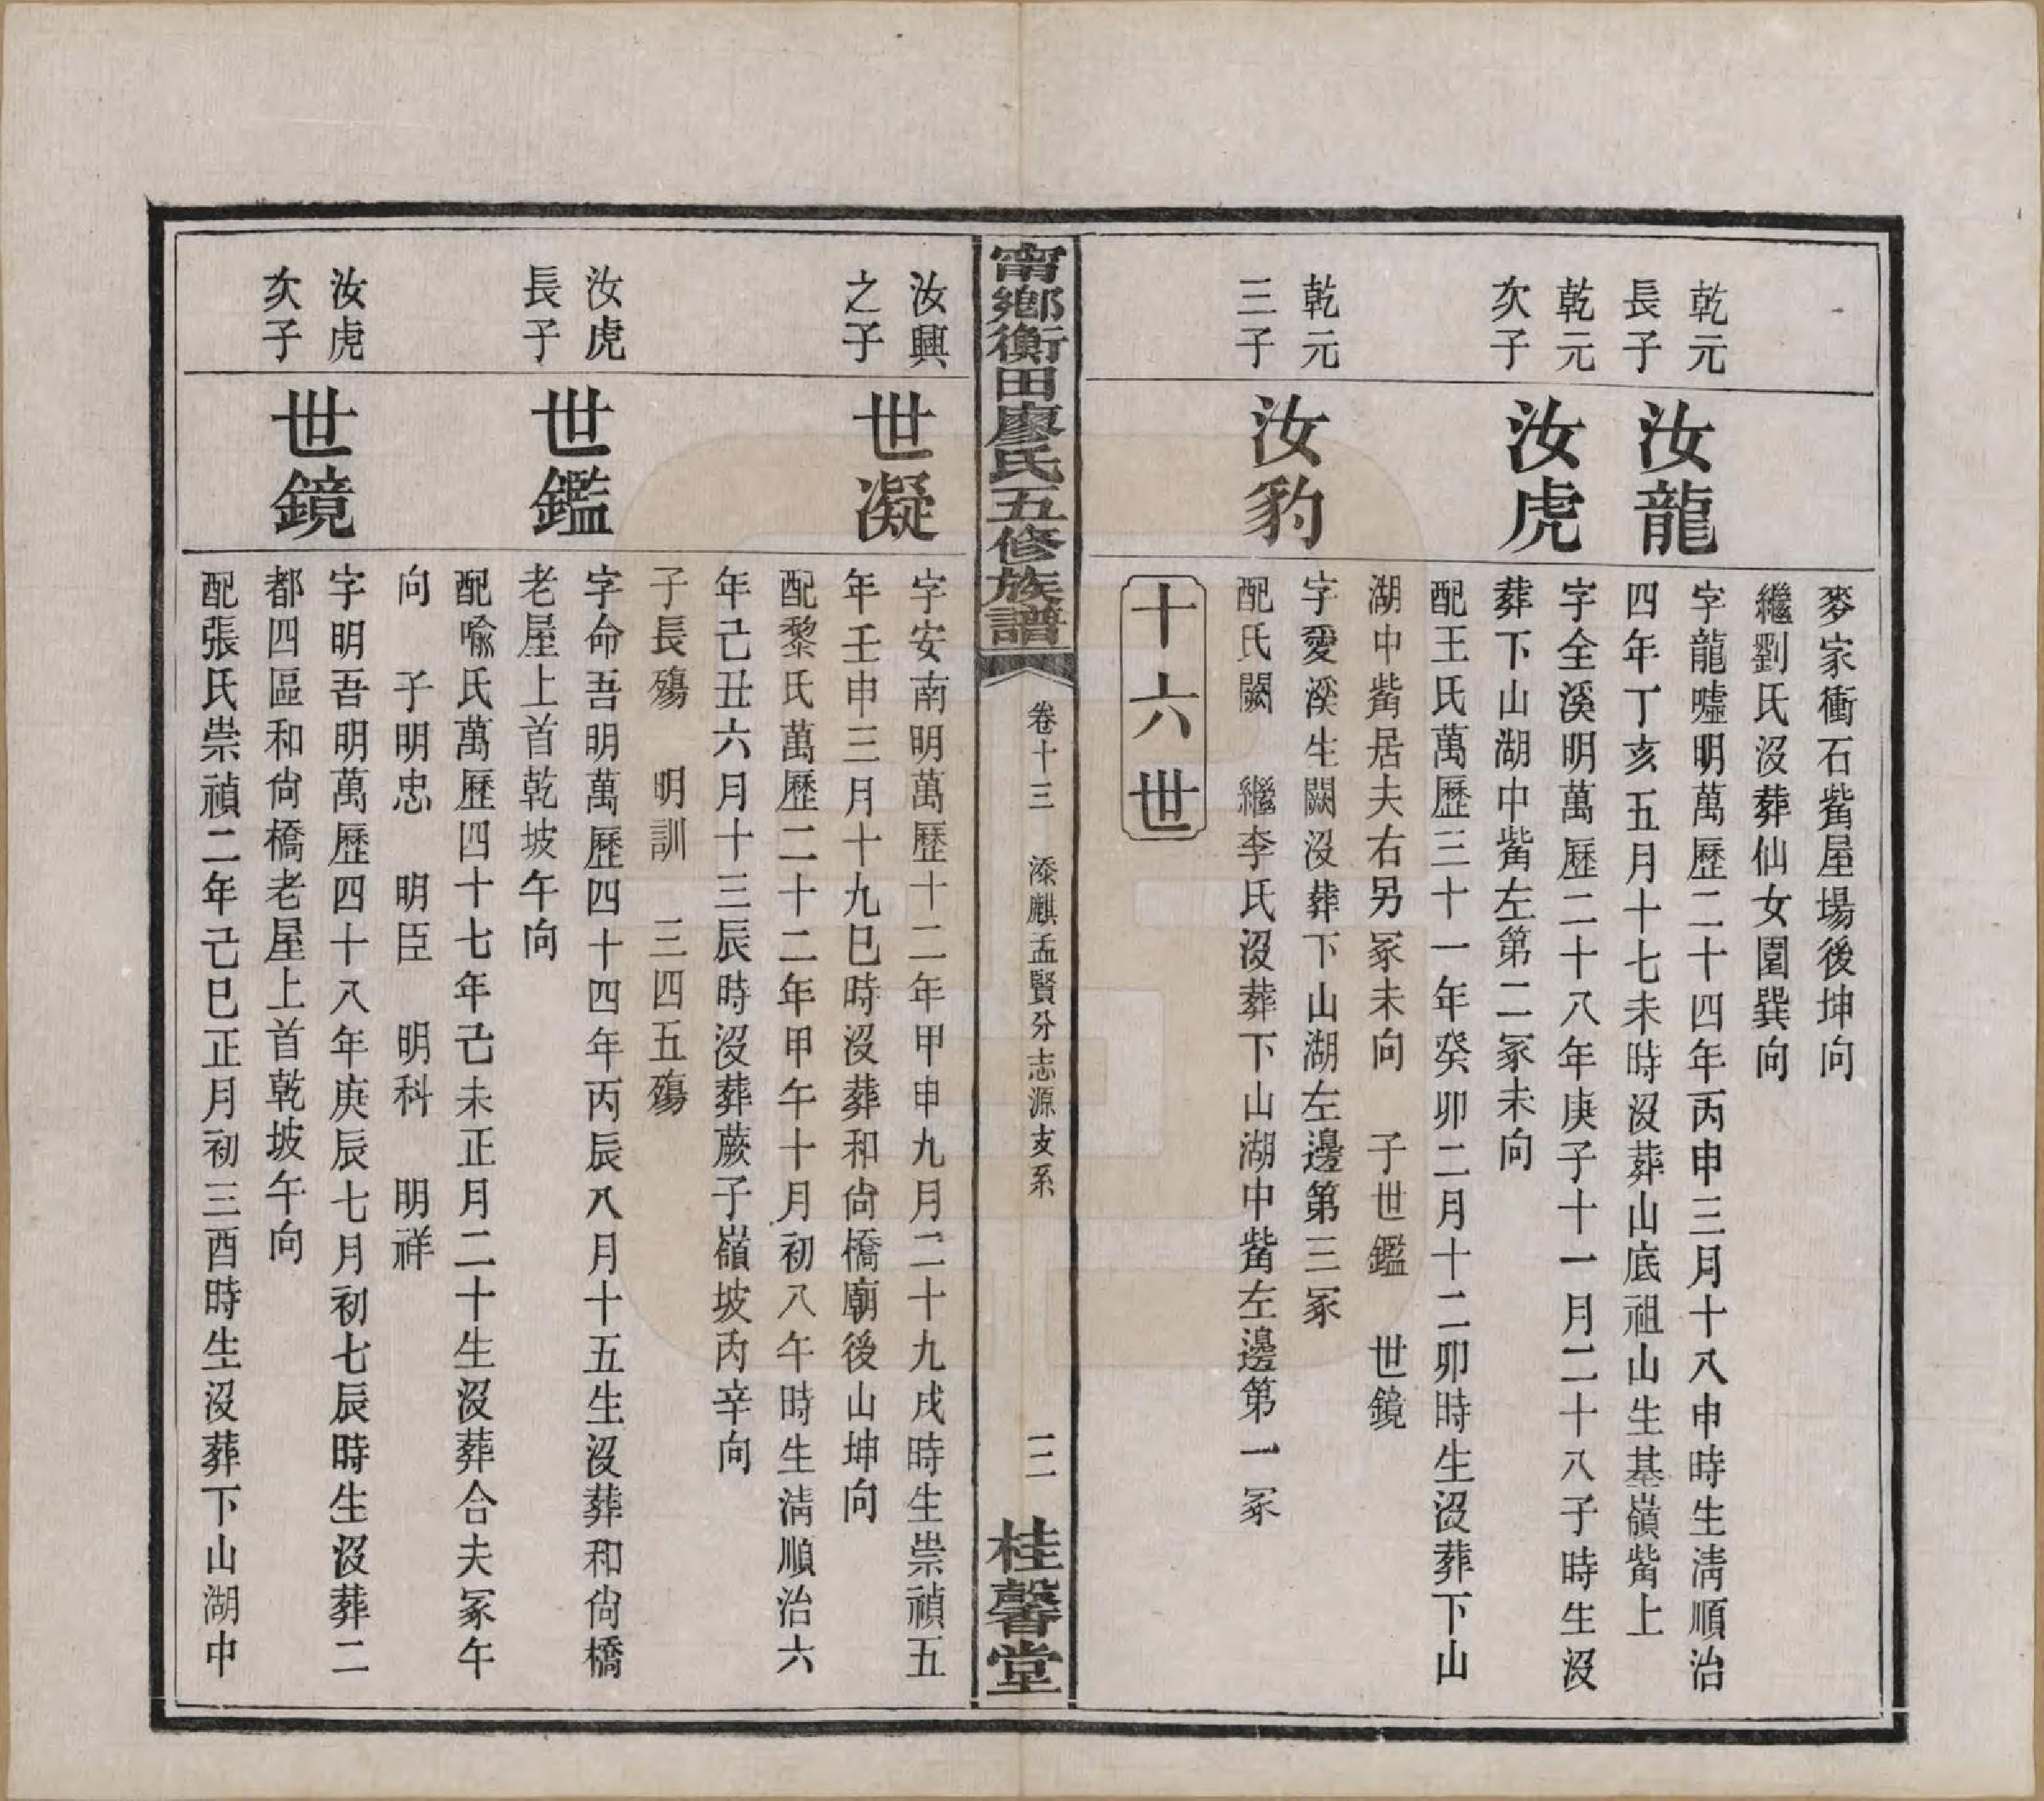 麥家衝石觜屋場後坤向
繼劉氏沒葬仙女園巽向
乾元
長子
汝龍
字龍噓明萬歷二十四年丙申三月十八申時生淸順治
四年丁亥五月十七未時沒葬山底祖山生基嶺觜上
乾元
次子
汝虎
字全溪明萬歷二十八年庚子十一月二十八子時生沒
葬下山湖中觜左第二冢未向
配王氏萬歷三十一年癸卯二月十二卯時生沒葬下山
湖中觜居夫右另冢未向 子世鑑 世鏡
乾元
三子
汝豹
字愛溪生闕沒葬下山湖左邊第三冢
配氏闕 繼李氏沒葬下山湖中觜左邊第一冢
十六世
甯鄉衡田廖氏五修族譜
卷十三 添麒孟賢分志源支系
三 桂馨堂
汝興
之子
世凝
字安南明萬歷十二年甲申九月二十九戌時生崇禎五
年壬申三月十九巳時沒葬和尙橋廟後山坤向
配黎氏萬歷二十二年甲午十月初八午時生淸順治六
年己丑六月十三辰時沒葬蕨子嶺坡丙辛向
子長殤 明訓 三四五殤
汝虎
長子
世鑑
字命吾明萬歷四十四年丙辰八月十五生沒葬和尙橋
老屋上首乾坡午向
配喩氏萬歷四十七年己未正月二十生沒葬合夫冢午
向 子明忠 明臣 明科 明祥
汝虎
次子
世鏡
字明吾明萬歷四十八年庚辰七月初七辰時生沒葬二
都四區和尙橋老屋上首乾坡午向
配張氏崇禎二年己巳正月初三酉時生沒葬下山湖中